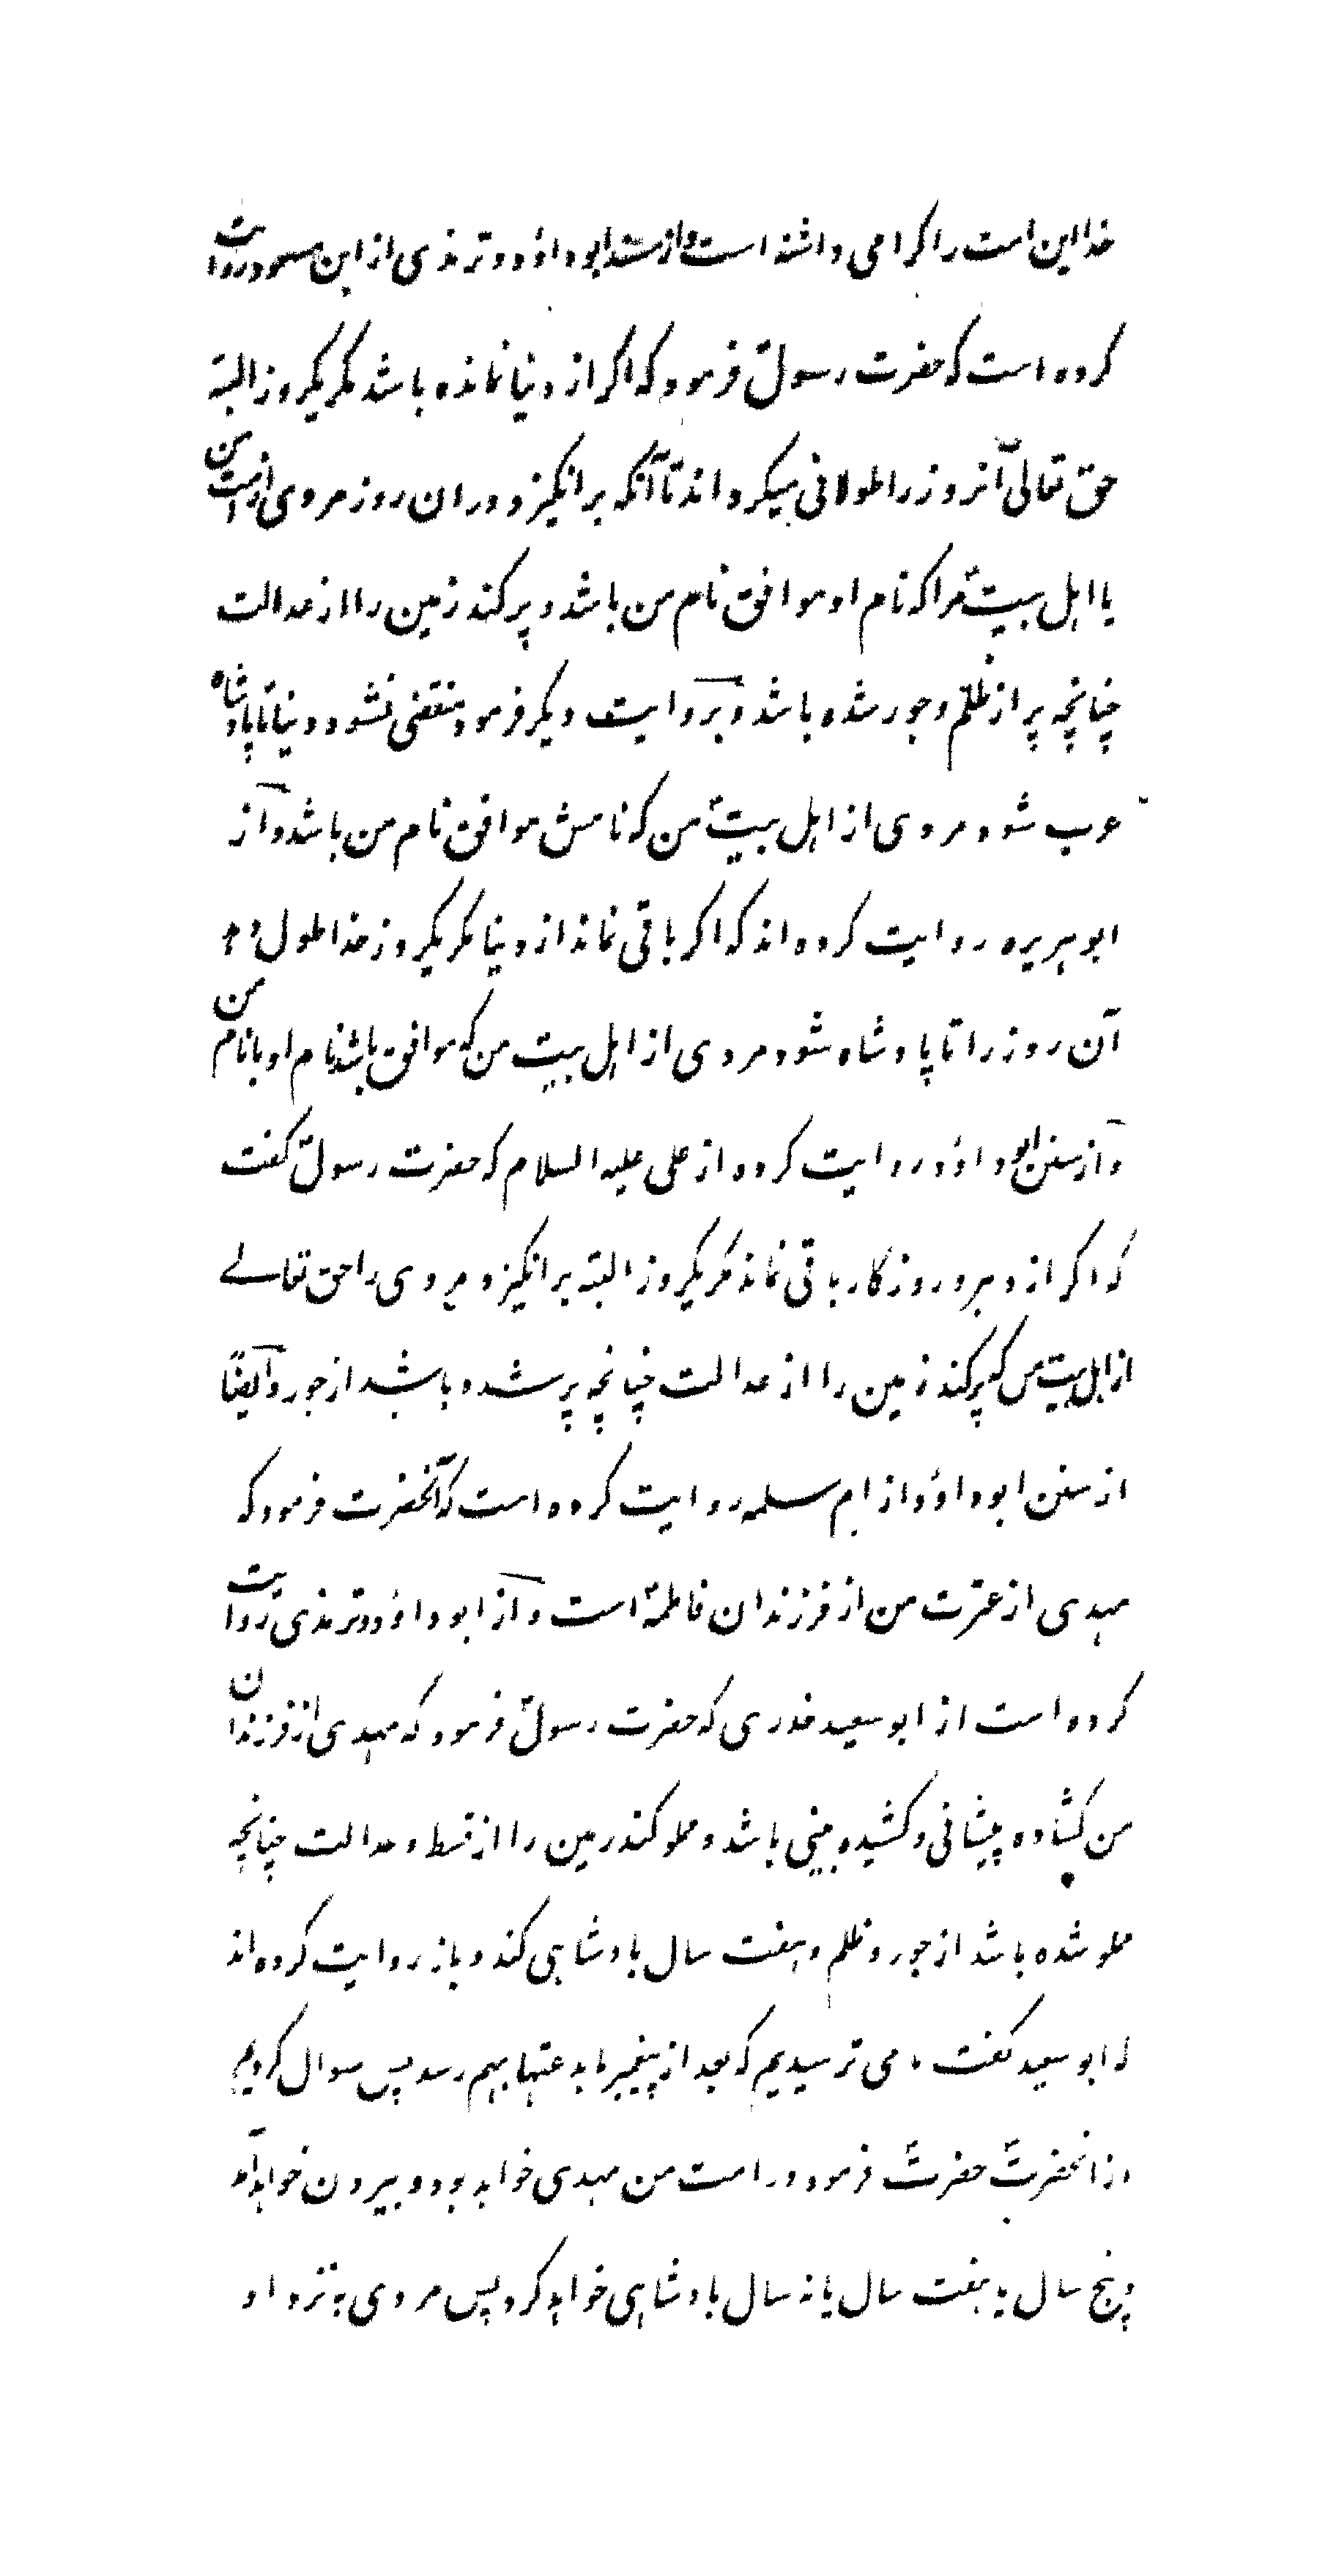 خدا این امت را گرامی داشته است و از مسند ابو داؤد و ترمذی از ابن مسعود روایت
کرده است که حضرت رسولؐ فرمود که اگر از دنیا نمانده باشد مگر یکروز البته
حق تعالیٰ آنروز را طولانی میگرداند تا آنکه برانگیزد در ان روز مردی از امت من
یا اهل بیتؑ مرا که نام او موافق نام من باشد و پر کند زمین را از عدالت
چنانچه پر از ظلم و جور شده باشد و بروایت دیگر فرمود منقضی نشود دنیا تا پادشاه
عرب شود مردی از اهل بیتؑ من که نامش موافق نام من باشد و از
ابو هریره روایت کرده اند که اگر باقی نماند از دنیا مگر یکروز خدا طول دهد
آن روز را تا پادشاه شود مردی از اهل بیت من که موافق باشد نام او با نام من
و از سنن ابو داؤد روایت کرده از علی علیه السلام که حضرت رسولؐ گفت
که اگر از دهر و روزگار باقی نماند مگر یکروز البته برانگیزد مردی را حق تعالے
از اهل بیت من که پر کند زمین را از عدالت چنانچه پر شده باشد از جور و ایضاً
از سنن ابو داؤد از ام سلمه روایت کرده است که آنحضرت فرمود که
مهدی از عترت من از فرزندان فاطمهؑ است و از ابو داؤد و ترمذی روایت
کرده است از ابو سعید خدری که حضرت رسولؐ فرمود که مهدی از فرزندان
من کشاده پیشانی و کشیده بینی باشد و مملو کند زمین را از قسط و عدالت چنانچه
مملو شده باشد از جور و ظلم و هفت سال بادشاهی کند و باز روایت کرده اند
که ابو سعید گفت ما می ترسیدیم که بعد از پیغمبر ما بدعتها بهم رسد پس سوال کردیم
از انحضرتؐ حضرتؐ فرمود در امت من مهدی خواهد بود و بیرون خواهد آمد
و پنج سال یا هفت سال یا نه سال بادشاهی خواهد کرد پس مردی به نزد او